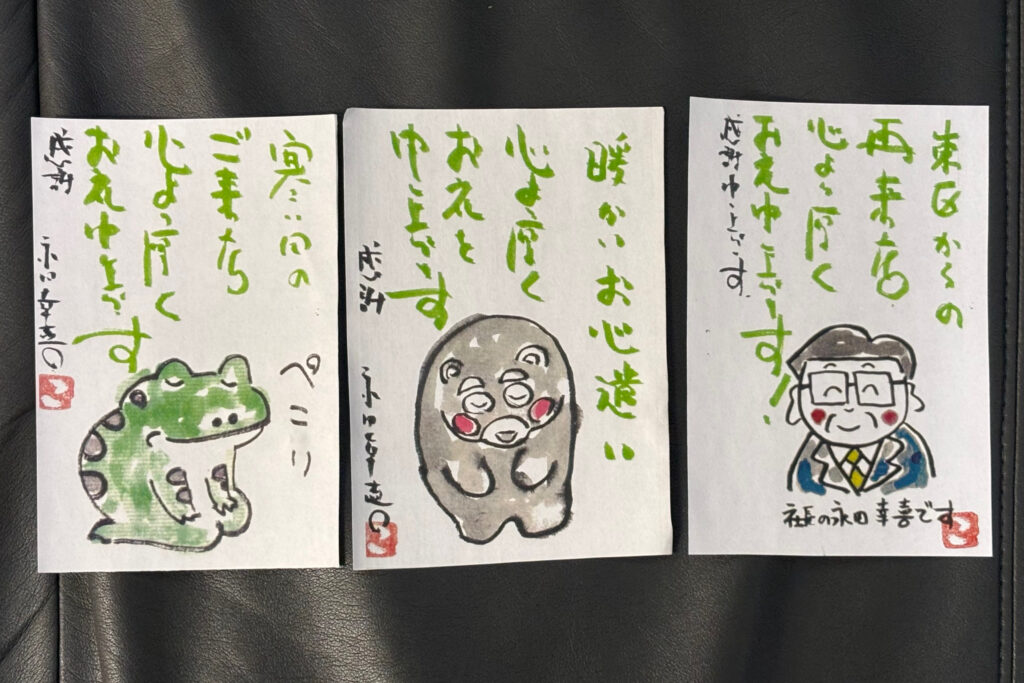 寒い日の
ご来店
心より厚く
お礼申し上げ
ます
ぺこり
感謝
永田幸喜
暖かいお心遣い
心より厚く
お礼を
申し上げます
感謝
永田幸喜
東区からの
再来店
心より厚く
お礼申し上げます!
感謝申し上げます
社長の永田幸喜です